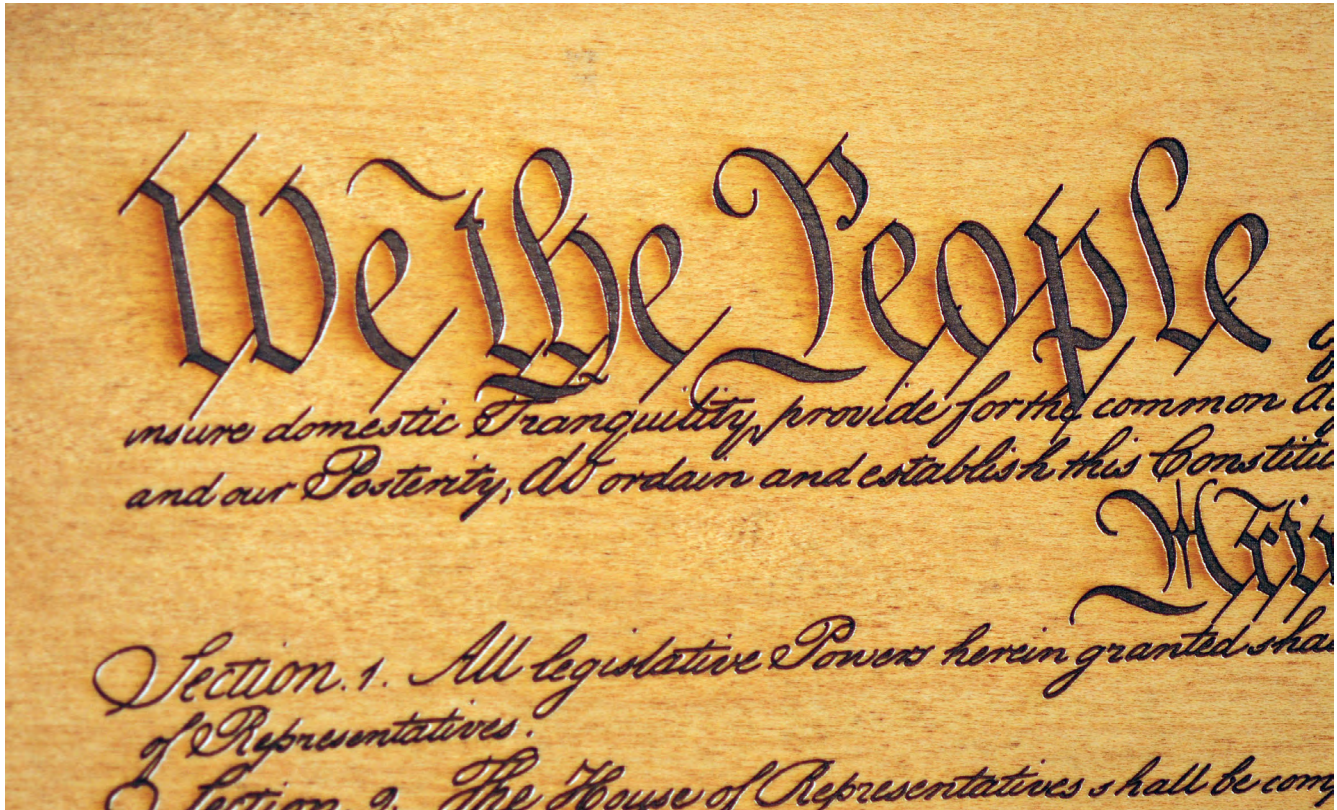 We the People
insure domestic Tranquility, provide for the common
and our Posterity, do ordain and establish this
Section. 1. All legislative Powers herein granted
of Representatives.
Section. 2. The House of Representatives shall be